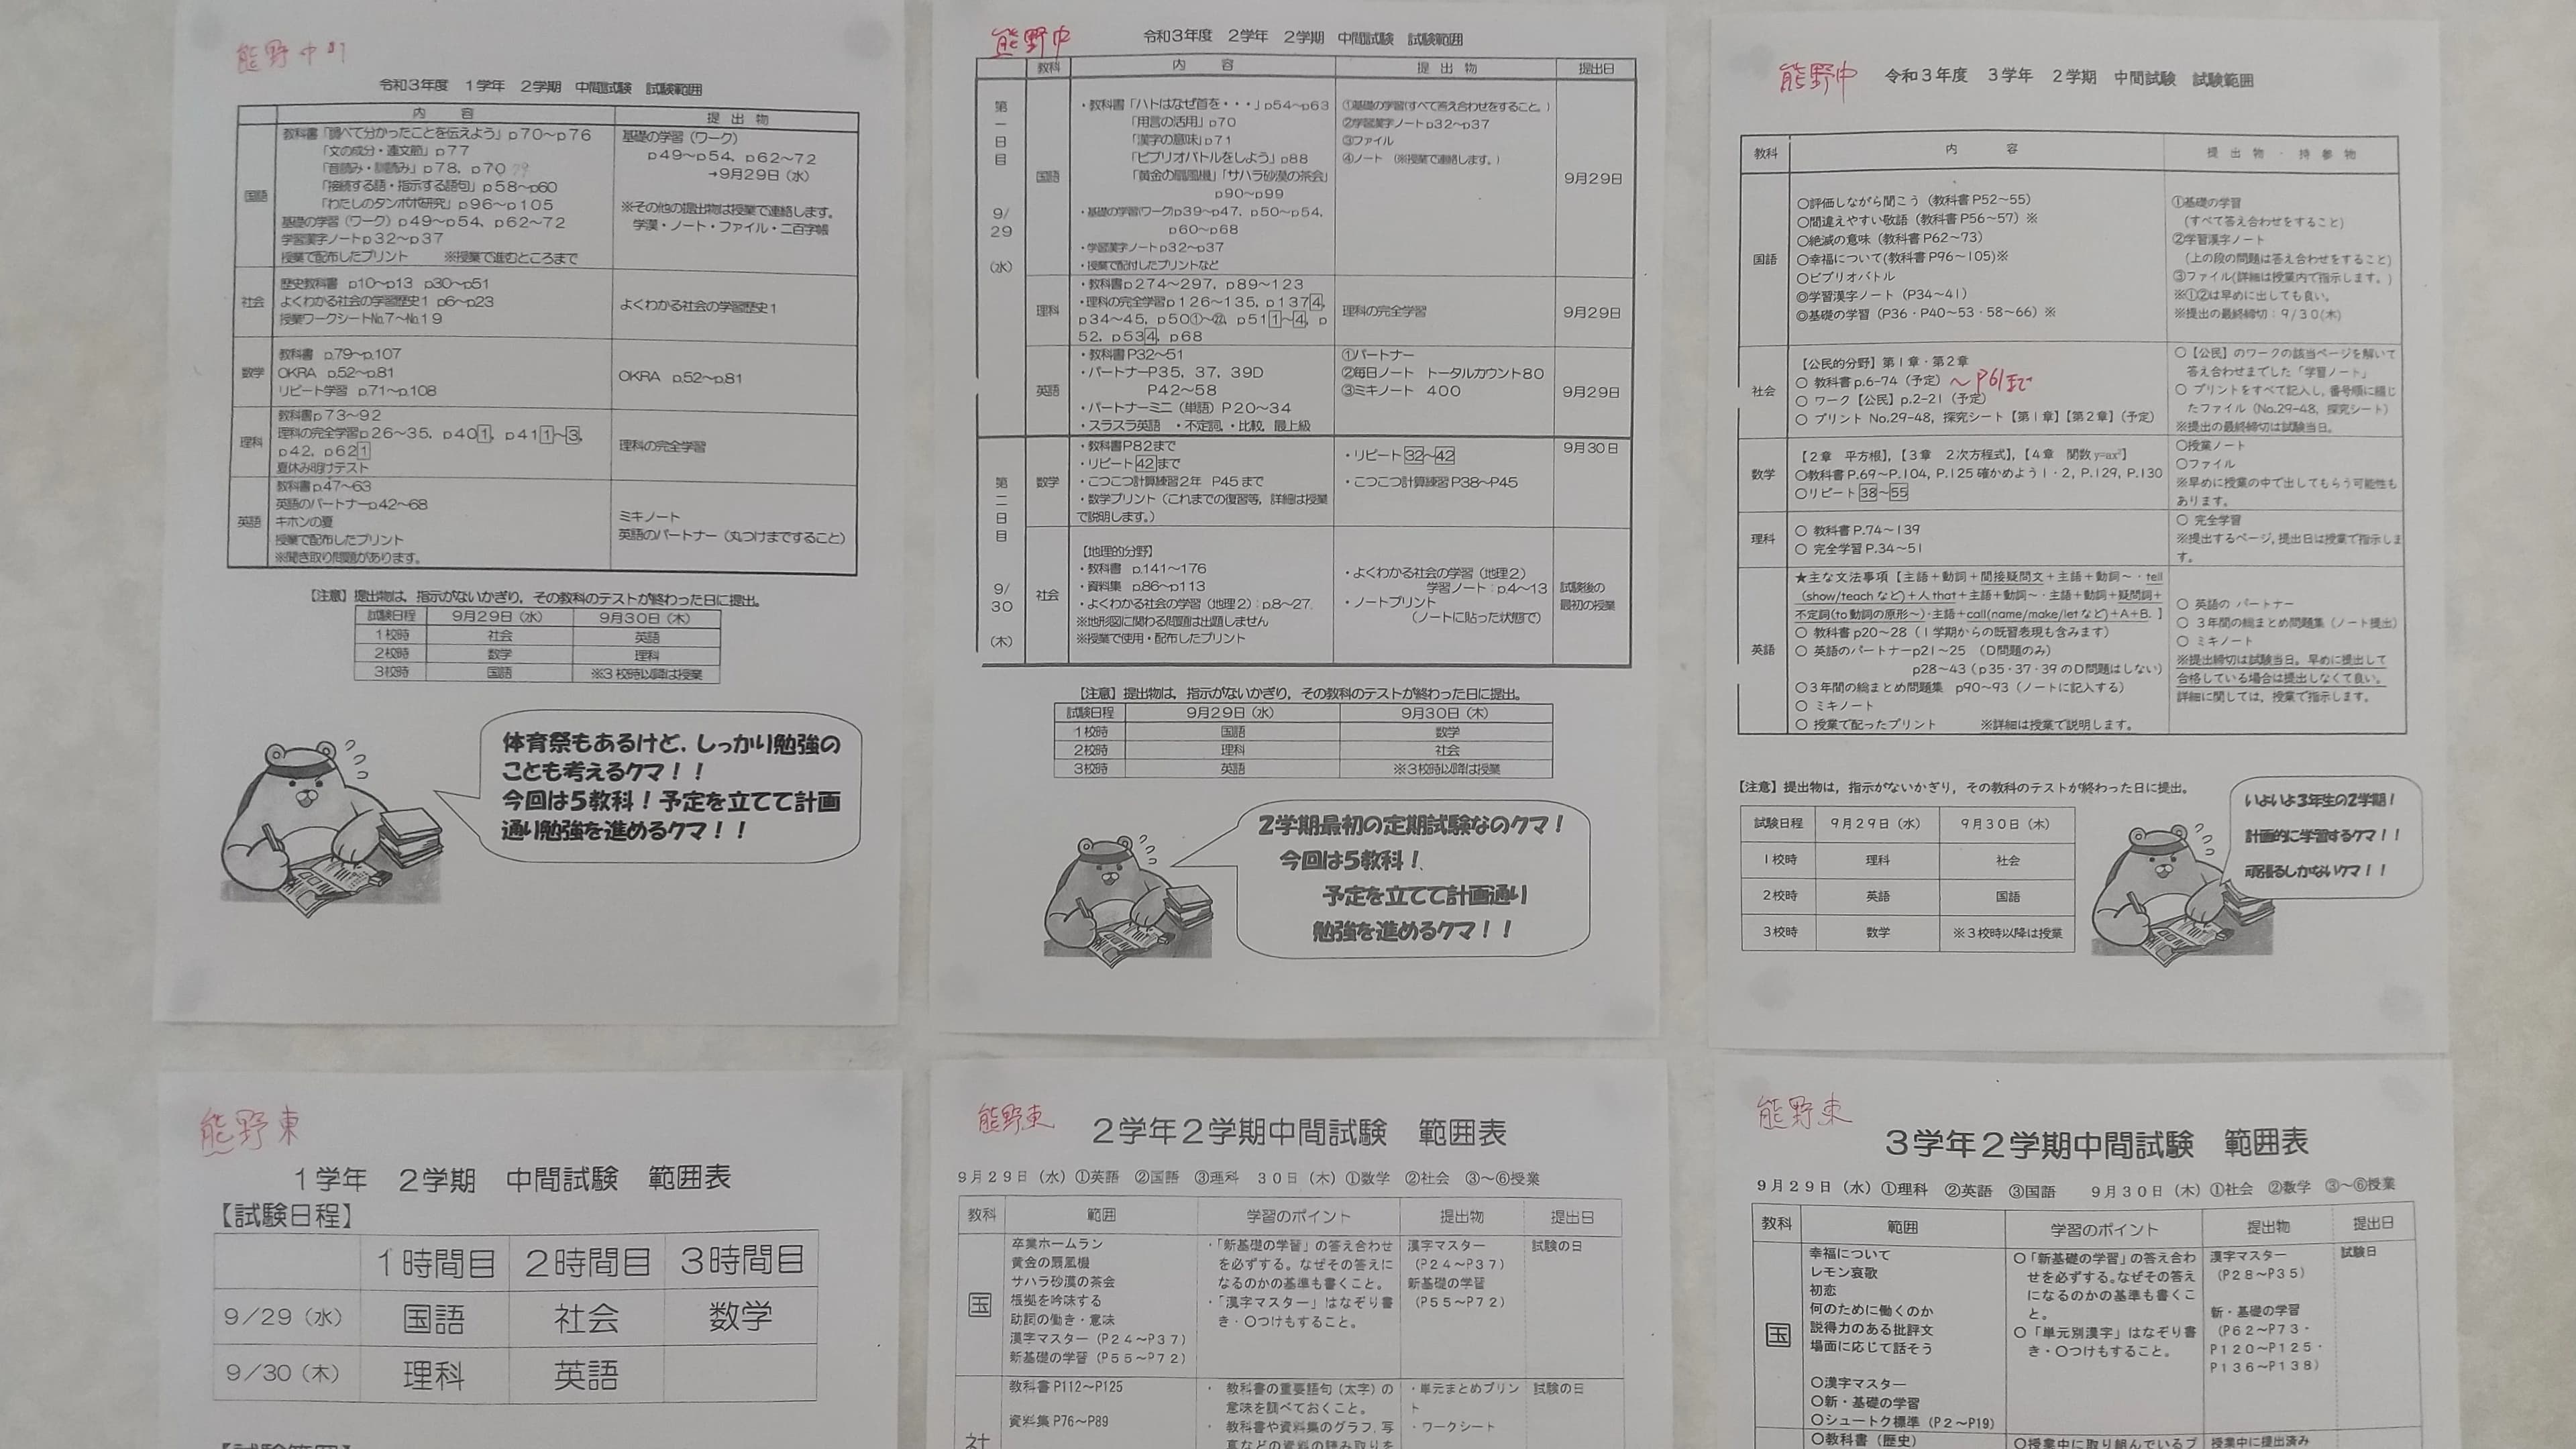 熊野中
令和3年度 1学年 2学期 中間試験 試験範囲
内 容 提 出 物
国語
教科書「調べて分かったことを伝えよう」p70～p76
「文の成分・連文節」p77
「音読み・訓読み」p78，p70 79
「接続する語・指示する語句」p58～p60
「わたしのタンポポ研究」p96～p105
基礎の学習（ワーク）p49～p54，p62～72
学習漢字ノートp32～p37
授業で配布したプリント ※授業で進むところまで
基礎の学習（ワーク）
p49～p54，p62～72
→9月29日（水）
※その他の提出物は授業で連絡します。
学漢・ノート・ファイル・二百字帳
社会
歴史教科書 p10～p13 p30～p51
よくわかる社会の学習歴史1 p6～p23
授業ワークシート№7～№19
よくわかる社会の学習歴史1
数学
教科書 p.79～p.107
OKRA p.52～p.81
リピート学習 p.71～p.108
OKRA p.52～p.81
理科
教科書p73～92
理科の完全学習p26～35，p40 1，p41 1～3，
p42，p62 1
夏休み明けテスト
理科の完全学習
英語
教科書p.47～63
英語のパートナーp.42～68
キホンの夏
授業で配布したプリント
※聞き取り問題があります。
ミキノート
英語のパートナー（丸つけまですること）
【注意】提出物は，指示がないかぎり，その教科のテストが終わった日に提出。
試験日程 9月29日（水） 9月30日（木）
1校時 社会 英語
2校時 数学 理科
3校時 国語 ※3校時以降は授業
体育祭もあるけど，しっかり勉強の
ことも考えるクマ！！
今回は5教科！予定を立てて計画
通り勉強を進めるクマ！！
熊野中
令和3年度 2学年 2学期 中間試験 試験範囲
教科 内 容 提 出 物 提出日
第一日目
9/29
（水）
国語
・教科書「ハトはなぜ首を・・・」p54～p63
「用言の活用」p70
「漢字の意味」p71
「ビブリオバトルをしよう」p88
「黄金の扇風機」「サハラ砂漠の茶会」
p90～p99
・基礎の学習(ワーク)p39～p47，p50～p54，
p60～p68
・学習漢字ノートp32～p37
・授業で配付したプリントなど
①基礎の学習(すべて答え合わせをすること。)
②学習漢字ノートp32～p37
③ファイル
④ノート （※授業で連絡します。）
9月29日
理科
・教科書p274～297，p89～123
・理科の完全学習p126～135，p137 4，
p34～45，p50①～㉒，p51 1～4，p
52，p53 4，p68
理科の完全学習
9月29日
英語
・教科書P32～51
・パートナーP35，37，39D
P42～58
・パートナーミニ（単語）P20～34
・スラスラ英語 ・不定詞，・比較，最上級
①パートナー
②毎日ノート トータルカウント80
③ミキノート 400
9月29日
第二日目
9/30
（木）
数学
・教科書P82まで
・リピート 42 まで
・こつこつ計算練習2年 P45まで
・数学プリント（これまでの復習等，詳細は授業
で説明します。）
・リピート 32～42
・こつこつ計算練習P38～P45
9月30日
社会
【地理的分野】
・教科書 p.141～176
・資料集 p.86～p113
・よくわかる社会の学習（地理2）：p.8～27．
※地形図に関わる問題は出題しません
※授業で使用・配布したプリント
・よくわかる社会の学習（地理2）
学習ノート：p.4～13
・ノートプリント
（ノートに貼った状態で）
試験後の
最初の授業
【注意】提出物は，指示がないかぎり，その教科のテストが終わった日に提出。
試験日程 9月29日（水） 9月30日（木）
1校時 国語 数学
2校時 理科 社会
3校時 英語 ※3校時以降は授業
2学期最初の定期試験なのクマ！
今回は5教科！
予定を立てて計画通り
勉強を進めるクマ！！
熊野中
令和3年度 3学年 2学期 中間試験 試験範囲
教科 内 容 提 出 物 ・ 持 参 物
国語
○評価しながら聞こう（教科書P52～55）
○間違えやすい敬語（教科書P56～57）※
○絶滅の意味（教科書P62～73）
○幸福について(教科書P96～105)※
○ビブリオバトル
◎学習漢字ノート（P34～41）
◎基礎の学習（P36・P40～53・58～66）※
①基礎の学習
（すべて答え合わせをすること）
②学習漢字ノート
（上の段の問題は答え合わせをすること）
③ファイル(詳細は授業内で指示します。)
※①②は早めに出しても良い。
※提出の最終締切：9/30(木)
社会
【公民的分野】第1章・第2章
○ 教科書p.6-74（予定）～P61まで
○ ワーク【公民】p.2-21（予定）
○ プリント No.29-48，探究シート【第1章】【第2章】（予定）
○【公民】のワークの該当ページを解いて
答え合わせまでした「学習ノート」
○ プリントをすべて記入し，番号順に綴じ
たファイル（No.29-48，探究シート）
※提出の最終締切は試験当日。
数学
【2章 平方根】，【3章 2次方程式】，【4章 関数y=ax²】
○教科書P.69～P.104，P.125確かめよう1・2，P.129，P.130
○リピート 38～55
○授業ノート
○ファイル
※早めに授業の中で出してもらう可能性も
あります。
理科
○ 教科書P.74～139
○ 完全学習P.34～51
○ 完全学習
※提出するページ，提出日は授業で指示しま
す。
英語
★主な文法事項【主語＋動詞＋間接疑問文＋主語＋動詞～・tell
（show/teachなど）＋人that＋主語＋動詞～・主語＋動詞＋疑問詞＋
不定詞（to動詞の原形～）・主語＋call(name/make/letなど)＋A＋B. 】
○ 教科書p20～28（1学期からの既習表現も含みます）
○ 英語のパートナーp21～25 （D問題のみ）
p28～43（p35・37・39のD問題はしない）
○3年間の総まとめ問題集 p90～93（ノートに記入する）
○ ミキノート
○ 授業で配ったプリント ※詳細は授業で説明します。
○ 英語の パートナー
○ 3年間の総まとめ問題集（ノート提出）
○ ミキノート
※提出締切は試験当日。早めに提出して
合格している場合は提出しなくて良い。
詳細に関しては，授業で指示します。
【注意】提出物は，指示がないかぎり，その教科のテストが終わった日に提出。
試験日程 9月29日（水） 9月30日（木）
1校時 理科 社会
2校時 英語 国語
3校時 数学 ※3校時以降は授業
いよいよ3年生の2学期！
計画的に学習するクマ！！
頑張るしかないクマ！！
熊野東
1学年 2学期 中間試験 範囲表
【試験日程】
1時間目 2時間目 3時間目
9/29（水） 国語 社会 数学
9/30（木） 理科 英語
熊野東
2学年2学期中間試験 範囲表
9月29日（水）①英語 ②国語 ③理科 30日（木）①数学 ②社会 ③～⑥授業
教科 範囲 学習のポイント 提出物 提出日
国
卒業ホームラン
黄金の扇風機
サハラ砂漠の茶会
根拠を吟味する
助詞の働き・意味
漢字マスター（P24～P37）
新基礎の学習（P55～P72）
・「新基礎の学習」の答え合わせ
を必ずする。なぜその答えに
なるのかの基準も書くこと。
・「漢字マスター」はなぞり書
き・○つけもすること。
漢字マスター
（P24～P37）
新基礎の学習
（P55～P72）
試験の日
社
教科書P112～P125
資料集P76～P89
・ 教科書の重要語句（太字）の
意味を調べておくこと。
・ 教科書や資料集のグラフ，写
真などの資料の読み取りを
・単元まとめプリン
ト
・ワークシート
試験の日
熊野東
3学年2学期中間試験 範囲表
9月29日（水）①理科 ②英語 ③国語 9月30日（木）①社会 ②数学 ③～⑥授業
教科 範囲 学習のポイント 提出物 提出日
国
幸福について
レモン哀歌
初恋
何のために働くのか
説得力のある批評文
場面に応じて話そう
○漢字マスター
○新・基礎の学習
○シュートク標準（P2～P19）
○「新基礎の学習」の答え合わ
せを必ずする。なぜその答え
になるのかの基準も書くこ
と。
○「単元別漢字」はなぞり書
き・○つけもすること。
漢字マスター
（P28～P35）
新・基礎の学習
（P62～P73・
P120～P125・
P136～P138）
試験日
○教科書（歴史）
○授業中に取り組んでいるプ
授業中に提出済み